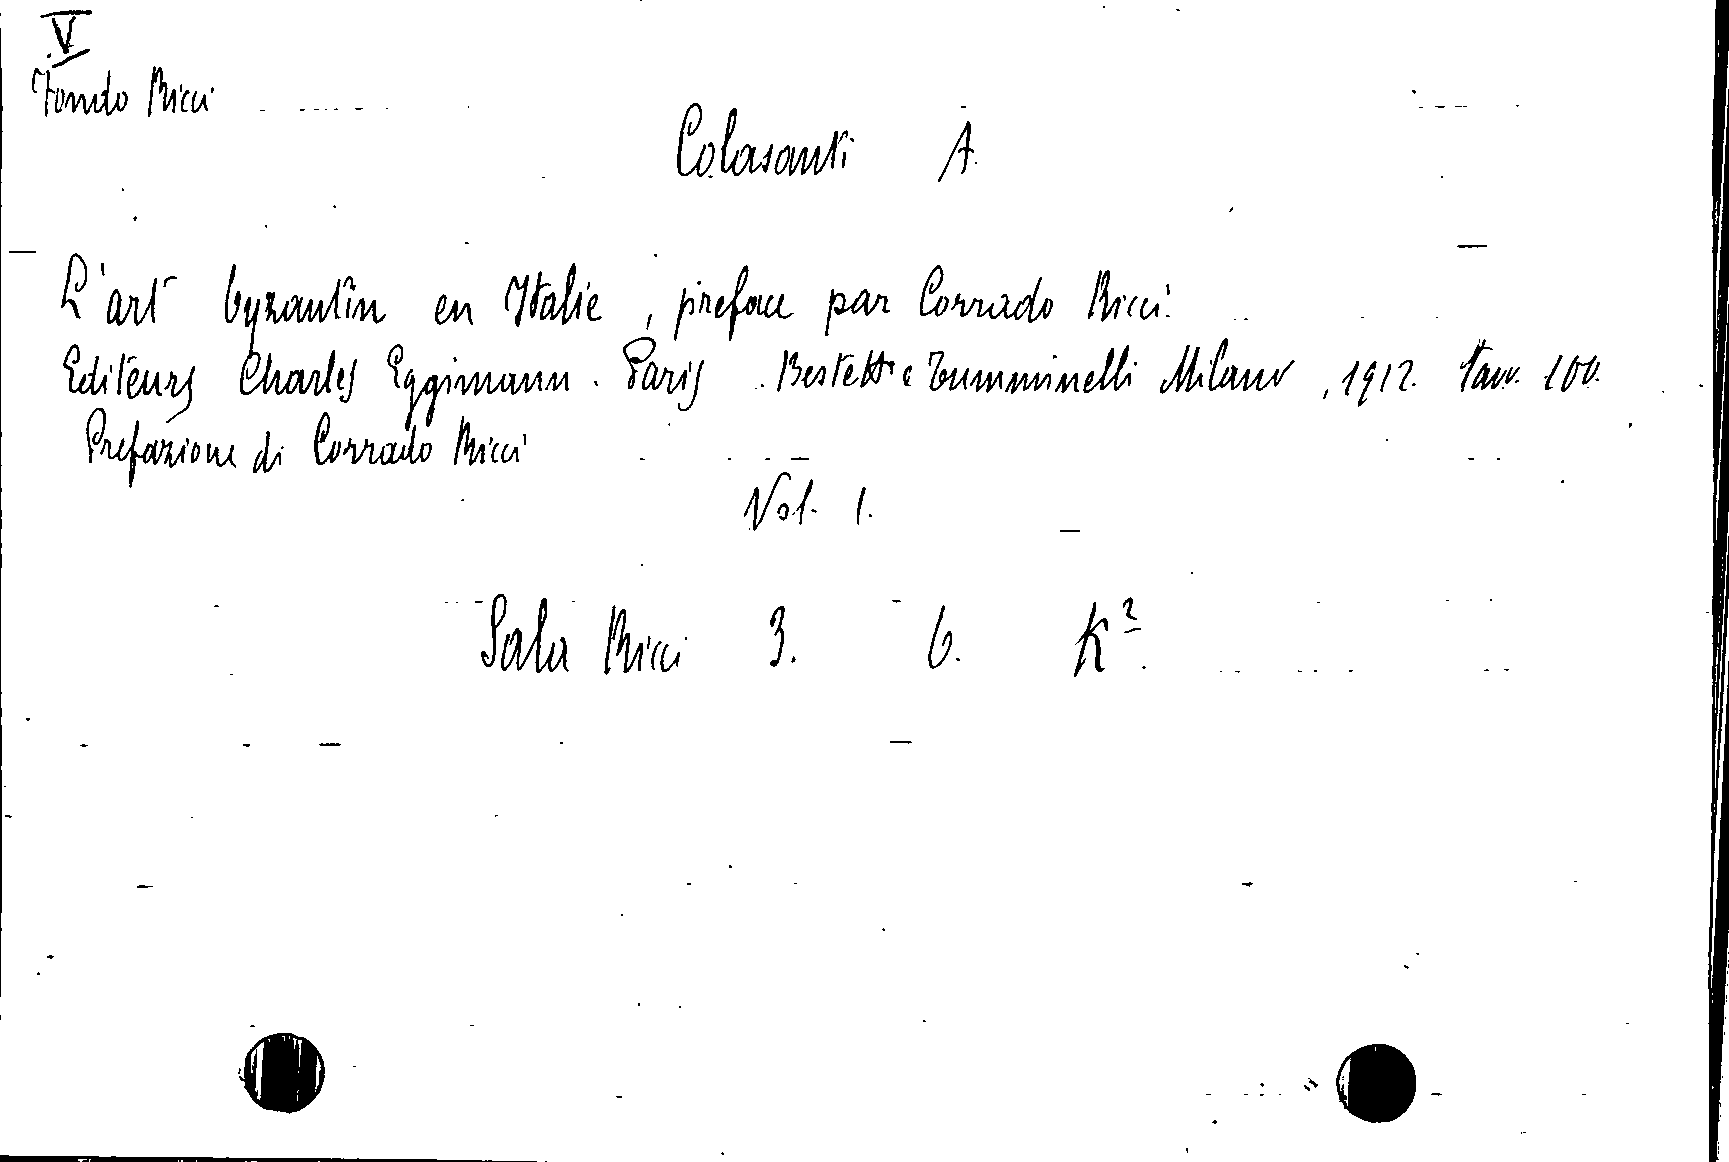 V
Fondo Ricci
Colasanti A.
L'art byzantin en Italie, preface par Corrado Ricci.
Editeurs Charles Eggimann. Paris. Bestetti e Tumminelli Milano, 1912. tav. 100.
Prefazione di Corrado Ricci
Vol. 1.
Sala Ricci 3. 6. K²